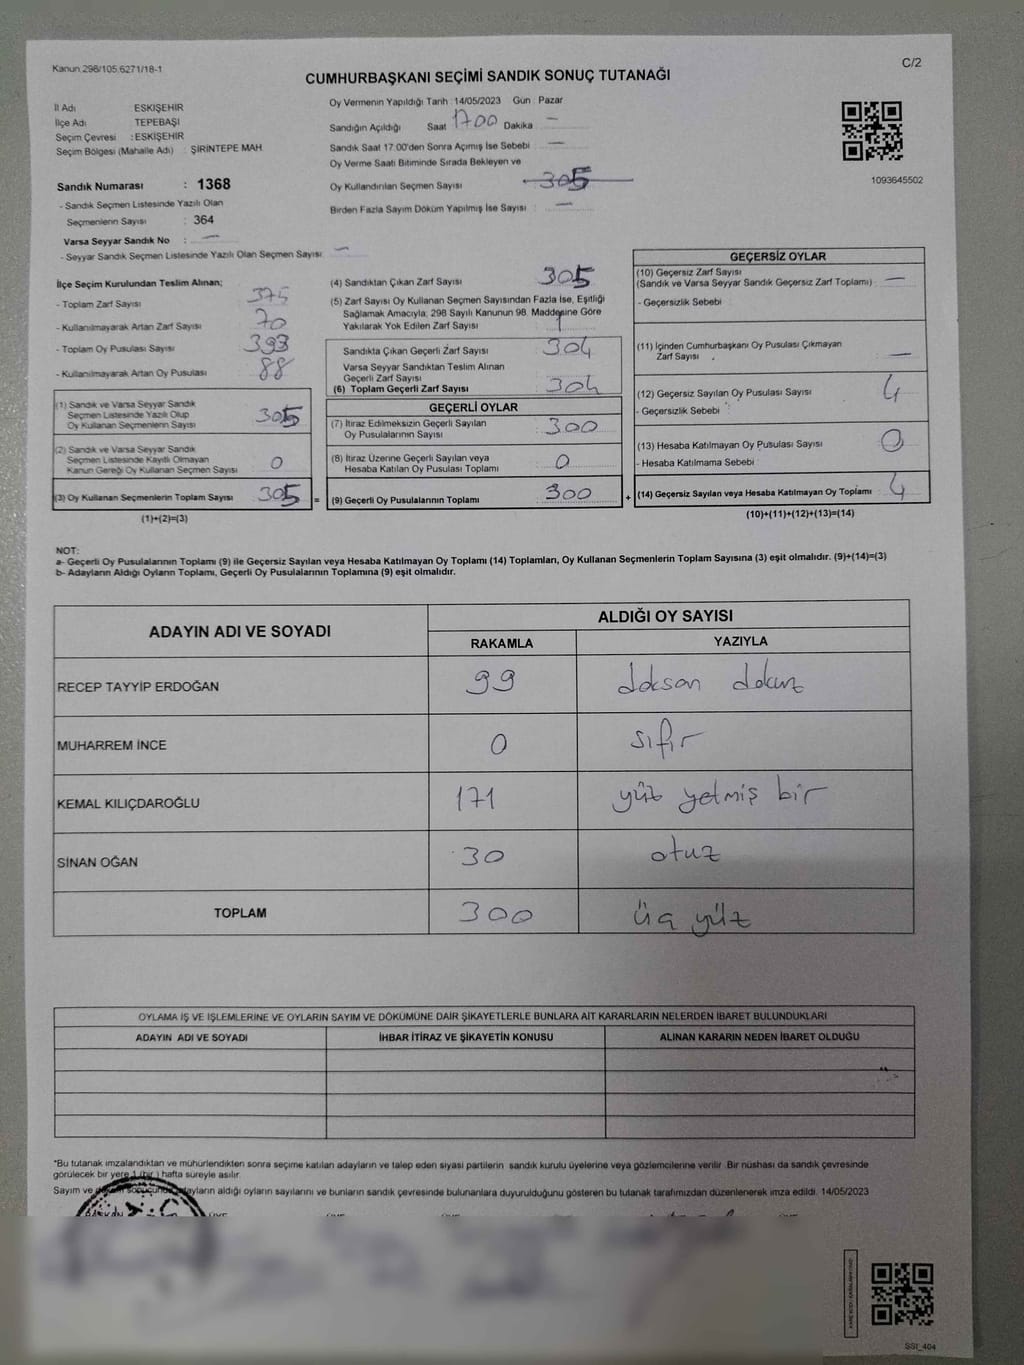 Kanun 298/105.6271/18-1
C/2
CUMHURBAŞKANI SEÇİMİ SANDIK SONUÇ TUTANAĞI
İl Adı ESKİŞEHİR
İlçe Adı TEPEBAŞI
Seçim Çevresi : ESKİŞEHİR
Seçim Bölgesi (Mahalle Adı) : ŞİRİNTEPE MAH.
Sandık Numarası : 1368
- Sandık Seçmen Listesinde Yazılı Olan
Seçmenlerin Sayısı : 364
Varsa Seyyar Sandık No : —
- Seyyar Sandık Seçmen Listesinde Yazılı Olan Seçmen Sayısı: —
Oy Vermenin Yapıldığı Tarih : 14/05/2023 Gün : Pazar
Sandığın Açıldığı Saat 1700 Dakika —
Sandık Saat 17.00'den Sonra Açımış İse Sebebi —
Oy Verme Saati Bitiminde Sırada Bekleyen ve
Oy Kullandırılan Seçmen Sayısı 305
Birden Fazla Sayım Döküm Yapılmış İse Sayısı : —
1093645502
İlçe Seçim Kurulundan Teslim Alınan;
- Toplam Zarf Sayısı 375
- Kullanılmayarak Artan Zarf Sayısı 70
- Toplam Oy Pusulası Sayısı 393
- Kullanılmayarak Artan Oy Pusulası 88
(1) Sandık ve Varsa Seyyar Sandık
Seçmen Listesinde Yazılı Olup
Oy Kullanan Seçmenlerin Sayısı 305
(2) Sandık ve Varsa Seyyar Sandık
Seçmen Listesinde Kayıtlı Olmayan
Kanun Gereği Oy Kullanan Seçmen Sayısı 0
(3) Oy Kullanan Seçmenlerin Toplam Sayısı 305 =
(1)+(2)=(3)
(4) Sandıktan Çıkan Zarf Sayısı 305
(5) Zarf Sayısı Oy Kullanan Seçmen Sayısından Fazla İse, Eşitliği
Sağlamak Amacıyla, 298 Sayılı Kanunun 98. Maddesine Göre
Yakılarak Yok Edilen Zarf Sayısı 1
Sandıkta Çıkan Geçerli Zarf Sayısı 304
Varsa Seyyar Sandıktan Teslim Alınan
Geçerli Zarf Sayısı
(6) Toplam Geçerli Zarf Sayısı 304
GEÇERLİ OYLAR
(7) İtiraz Edilmeksizin Geçerli Sayılan
Oy Pusulalarının Sayısı 300
(8) İtiraz Üzerine Geçerli Sayılan veya
Hesaba Katılan Oy Pusulası Toplamı 0
(9) Geçerli Oy Pusulalarının Toplamı 300 +
GEÇERSİZ OYLAR
(10) Geçersiz Zarf Sayısı
(Sandık ve Varsa Seyyar Sandık Geçersiz Zarf Toplamı) : —
- Geçersizlik Sebebi :
(11) İçinden Cumhurbaşkanı Oy Pusulası Çıkmayan
Zarf Sayısı —
(12) Geçersiz Sayılan Oy Pusulası Sayısı 4
- Geçersizlik Sebebi :
(13) Hesaba Katılmayan Oy Pusulası Sayısı 0
- Hesaba Katılmama Sebebi :
(14) Geçersiz Sayılan veya Hesaba Katılmayan Oy Toplamı 4
(10)+(11)+(12)+(13)=(14)
NOT:
a- Geçerli Oy Pusulalarının Toplamı (9) ile Geçersiz Sayılan veya Hesaba Katılmayan Oy Toplamı (14) Toplamları, Oy Kullanan Seçmenlerin Toplam Sayısına (3) eşit olmalıdır. (9)+(14)=(3)
b- Adayların Aldığı Oyların Toplamı, Geçerli Oy Pusulalarının Toplamına (9) eşit olmalıdır.
ADAYIN ADI VE SOYADI ALDIĞI OY SAYISI
RAKAMLA YAZIYLA
RECEP TAYYİP ERDOĞAN 99 doksan dokuz
MUHARREM İNCE 0 sıfır
KEMAL KILIÇDAROĞLU 171 yüz yetmiş bir
SİNAN OĞAN 30 otuz
TOPLAM 300 üç yüz
OYLAMA İŞ VE İŞLEMLERİNE VE OYLARIN SAYIM VE DÖKÜMÜNE DAİR ŞİKAYETLERLE BUNLARA AİT KARARLARIN NELERDEN İBARET BULUNDUKLARI
ADAYIN ADI VE SOYADI İHBAR İTİRAZ VE ŞİKAYETİN KONUSU ALINAN KARARIN NEDEN İBARET OLDUĞU
*Bu tutanak imzalandıktan ve mühürlendikten sonra seçime katılan adayların ve talep eden siyasi partilerin sandık kurulu üyelerine veya gözlemcilerine verilir. Bir nüshası da sandık çevresinde
görülecek bir yere 1 (bir) hafta süreyle asılır.
Sayım ve döküm sonucunda adayların aldığı oyların sayılarını ve bunların sandık çevresinde bulunanlara duyurulduğunu gösteren bu tutanak tarafımızdan düzenlenerek imza edildi. 14/05/2023
BAŞKAN ÜYE ÜYE ÜYE ÜYE
SSI_404